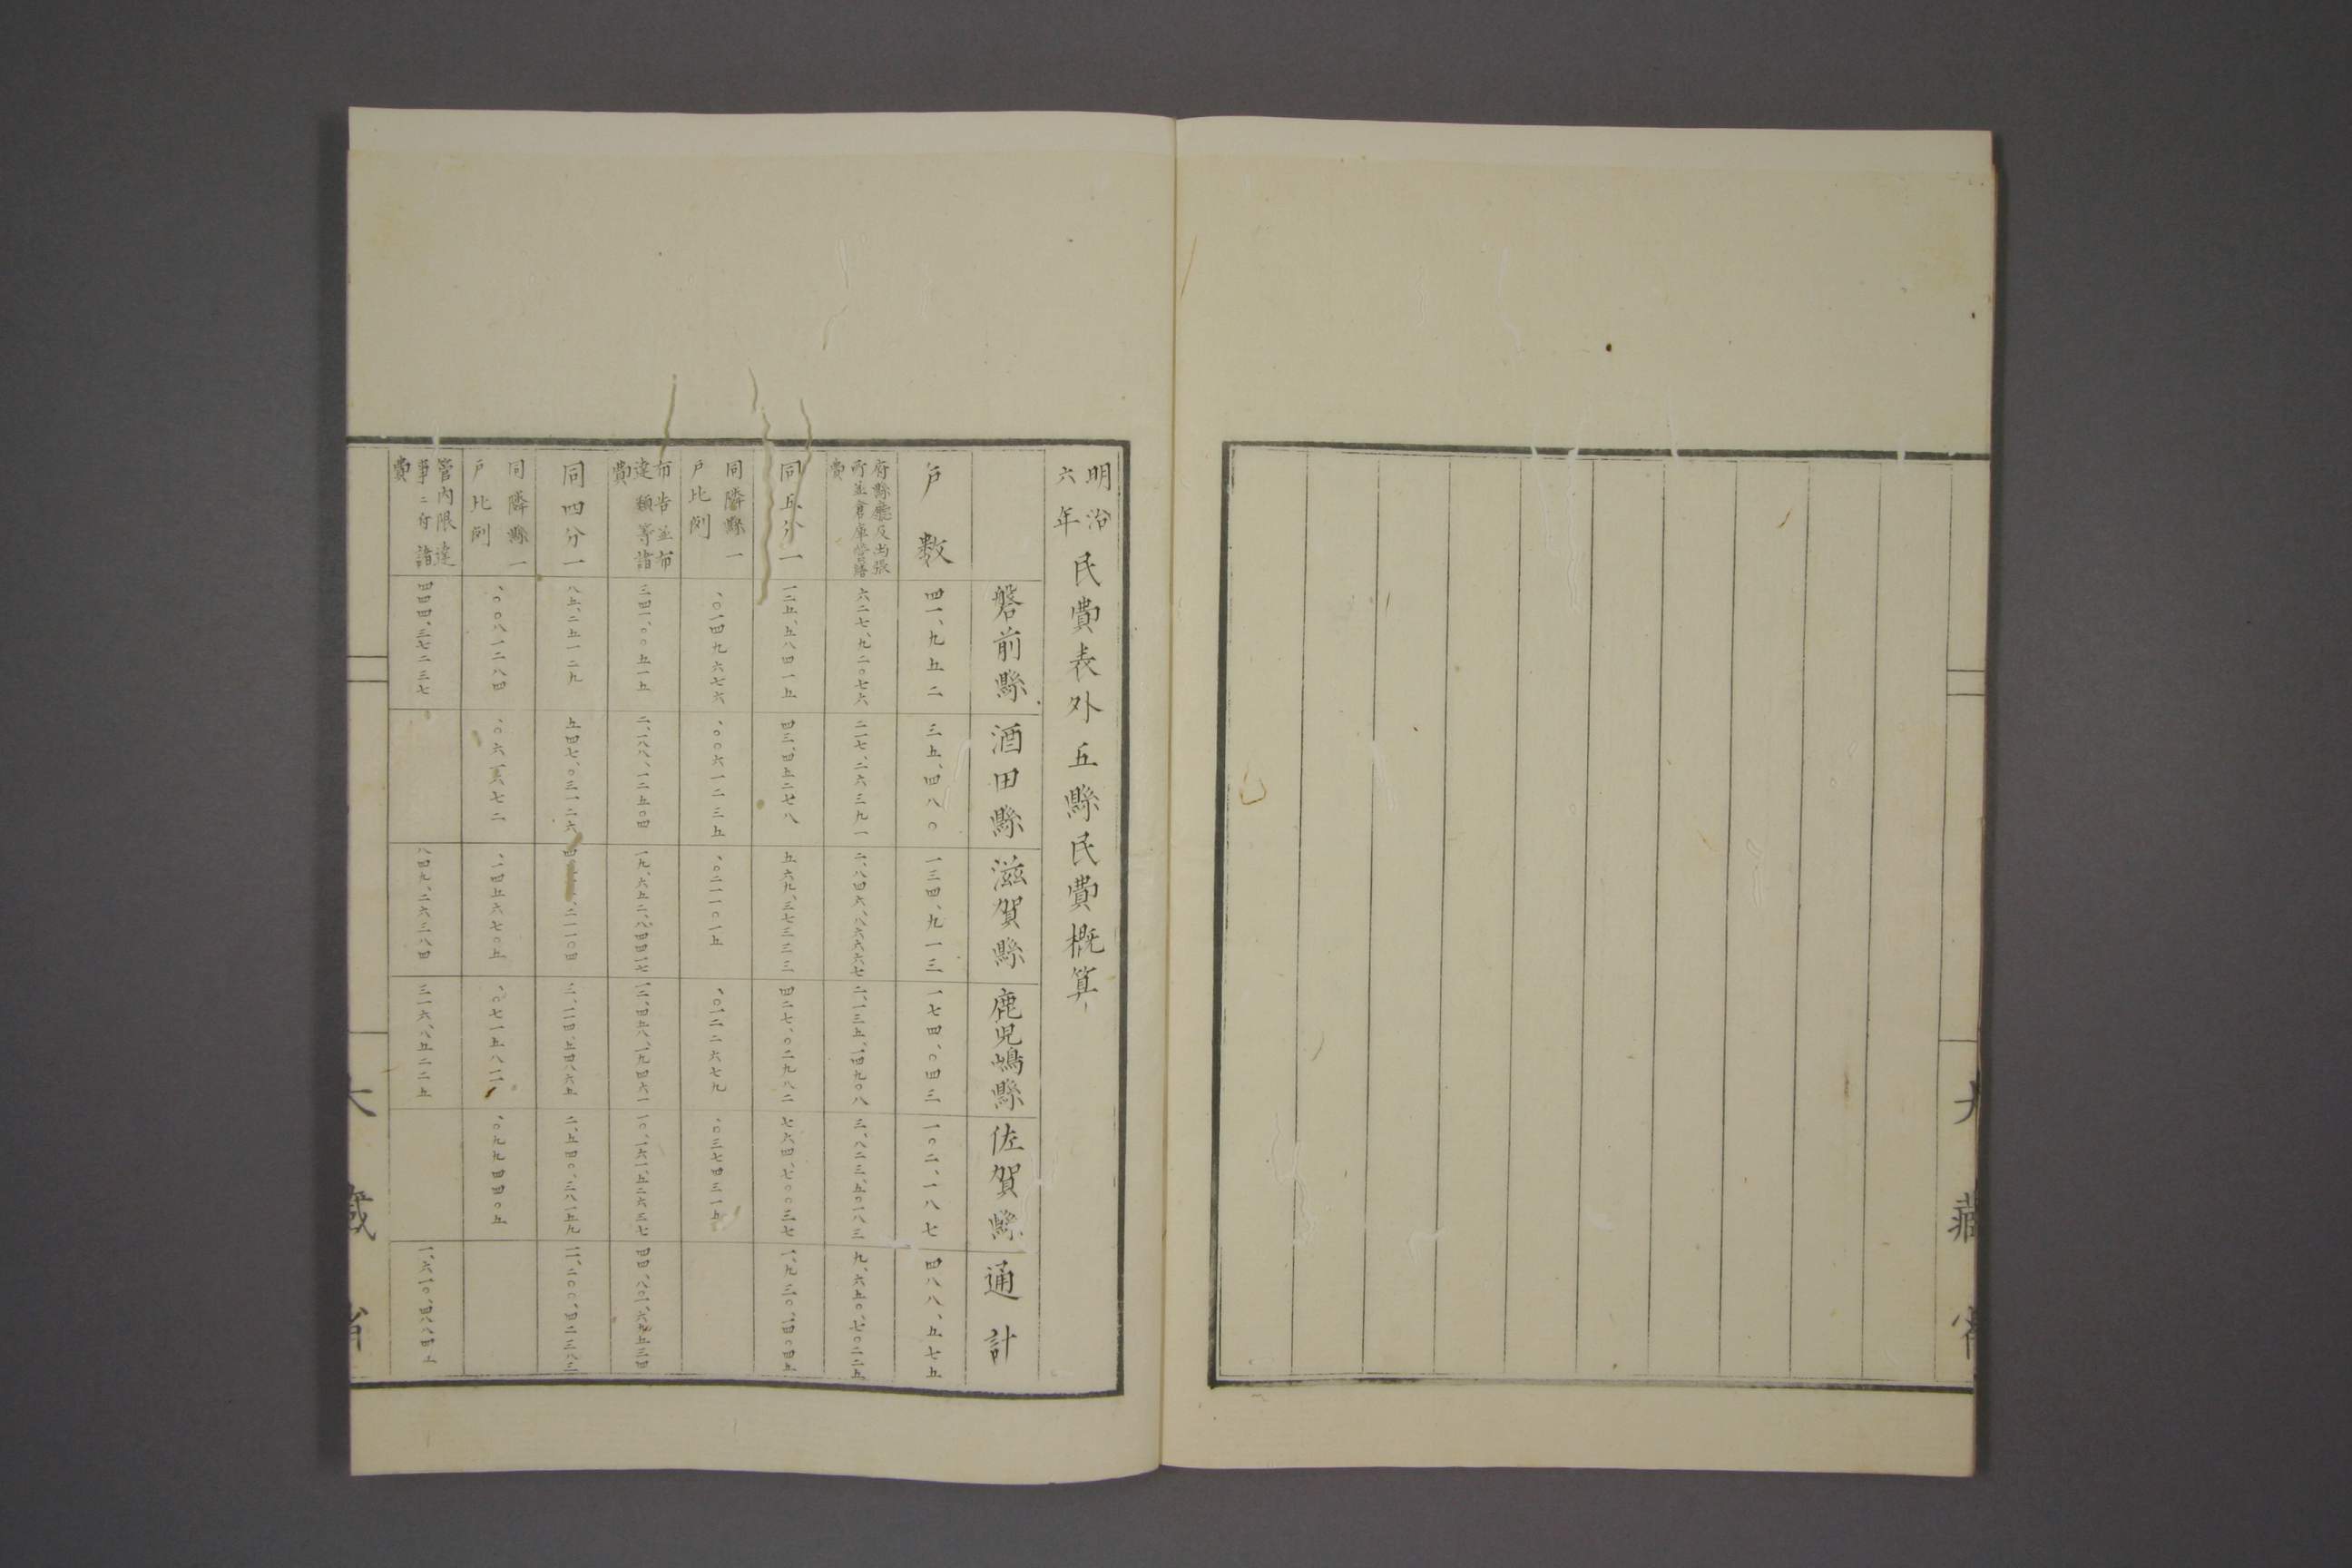 大藏省
明治六年民費表外五縣民費概算
磐前縣
酒田縣
滋賀縣
鹿児嶋縣
佐賀縣
通計
戸数
四一、九五二
三五、四八〇
一三四、九一三
一七四、〇四三
一〇二、一八七
四八八、五七五
府縣廳及出張
所並倉庫營繕
費
六二七、九二〇七六
二一七、二六三九一
二、八四六、八六六六七
二、一三五、一四九〇八
三、八二三、五〇一八三
九、六五〇、七〇二二五
同五分一
一二五、五八四一五
四三、四五二七八
五六九、三七三三三
四二七、〇二九八二
七六四、七〇〇三七
一、九三〇、一四〇四五
同隣縣一
戸比例
、〇一四九六七六
、〇〇六一二三五
、〇二一一〇一五
、〇一二二六七九
、〇三七四三一五
布告並布
達類等諸
費
三四一、〇〇五一五
二、一八八、一二五〇四
一九、六五二、八四四一七
一二、四五八、一九四六一
一〇、一六一、五二六三七
四四、八〇一、六九五三四
同四分一
八五、二五一二九
五四七、〇三一二六
二、一一四、五四八六五
二、五四〇、三八一五九
一一、二〇〇、四二三八三
同隣縣一
戸比例
、〇〇八一二八四
、一四五六七〇五
、〇七一五八二
、〇九九四四〇五
管内限達
事ニ付諸
費
四四四、三七二三七
八四九、二六三八四
三一六、八五二二五
一、六一〇、四八八四五
大藏省